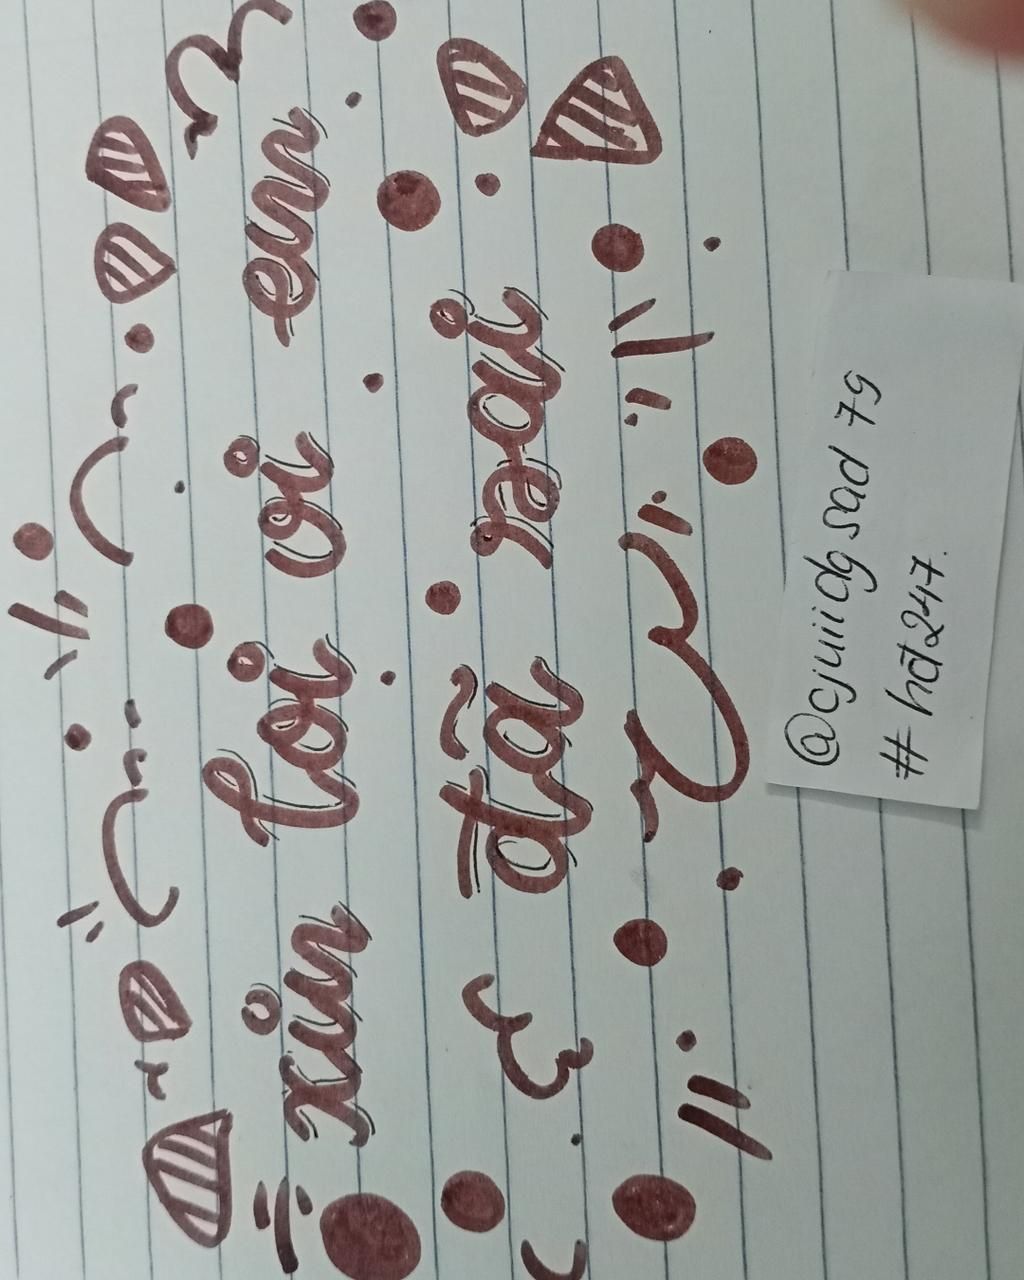 xin loi vi em
đã sai
@cjuiidgsad79
#hđ247.